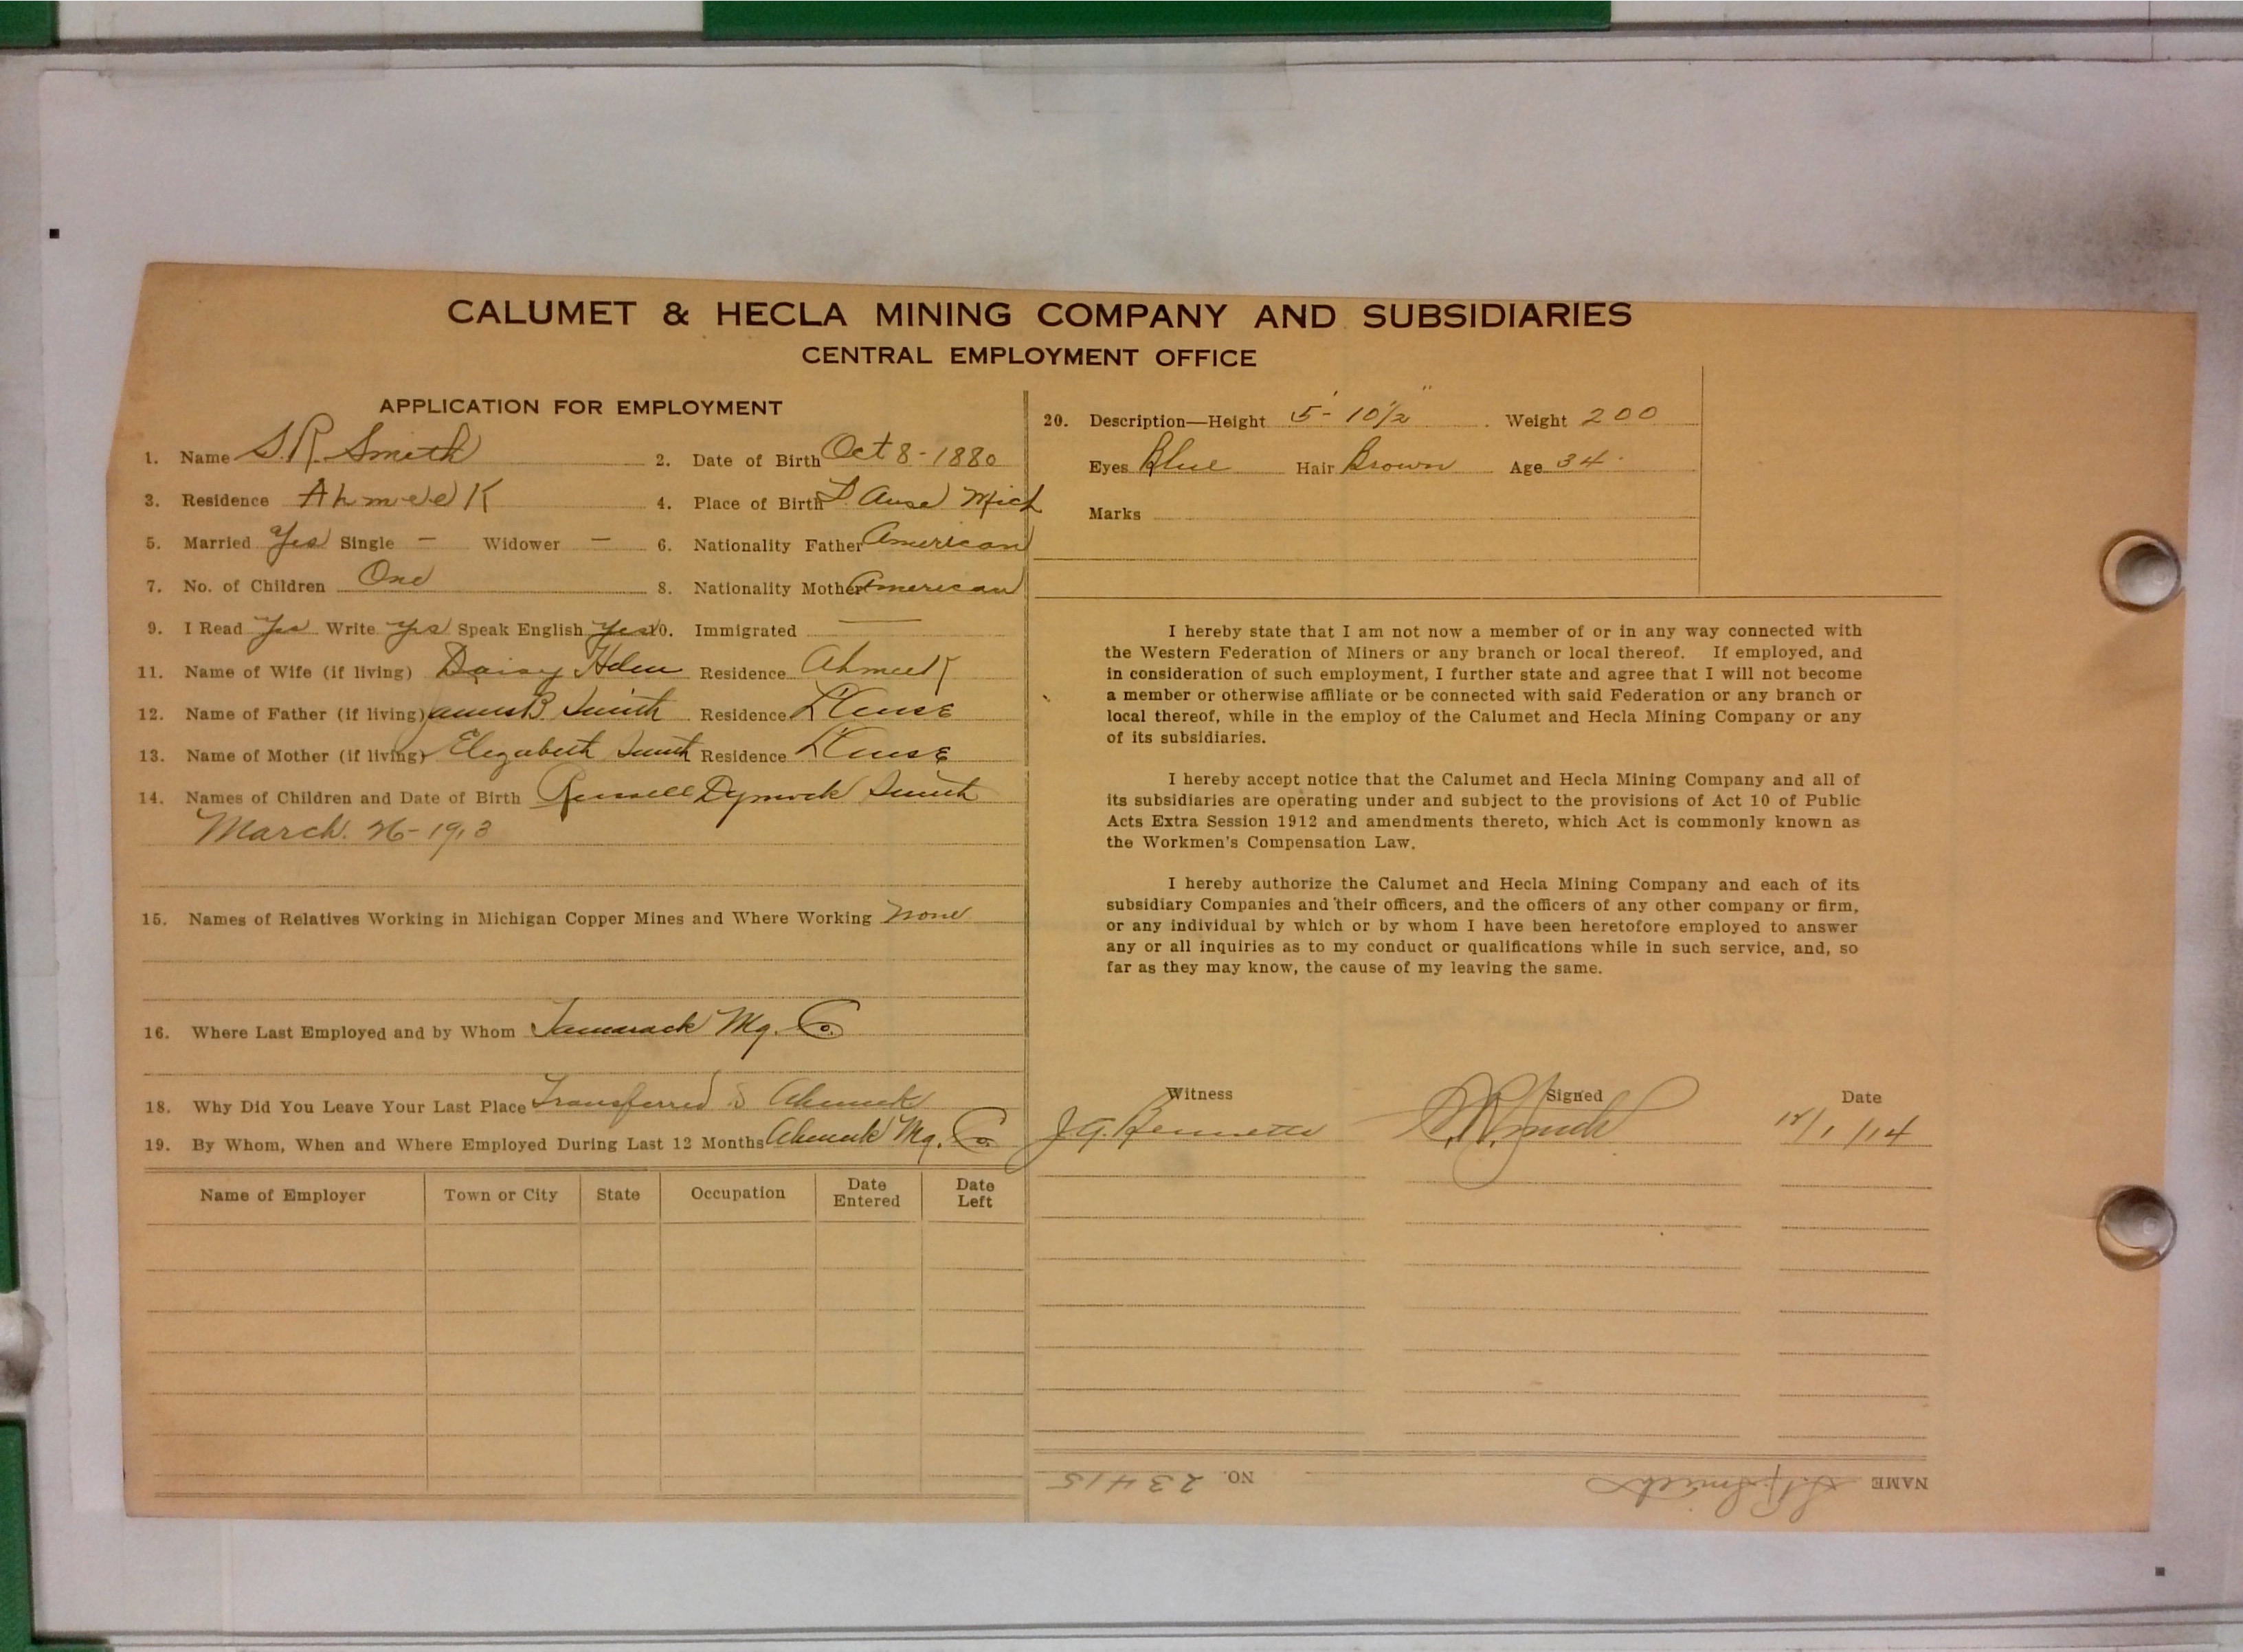 CALUMET & HECLA MINING COMPANY AND SUBSIDIARIES
CENTRAL EMPLOYMENT OFFICE
APPLICATION FOR EMPLOYMENT
1. Name S.R. Smith 2. Date of Birth Oct 8-1880
3. Residence Ahmeek 4. Place of Birth L'Anse Mich
5. Married Yes Single — Widower — 6. Nationality Father American
7. No. of Children One 8. Nationality Mother American
9. I Read Yes Write Yes Speak English Yes 10. Immigrated —
11. Name of Wife (if living) Daisy Helen Residence Ahmeek
12. Name of Father (if living) James B Smith Residence L'Anse
13. Name of Mother (if living) Elizabeth Smith Residence L'Anse
14. Names of Children and Date of Birth Russell Dymock Smith
March. 26-1913
15. Names of Relatives Working in Michigan Copper Mines and Where Working None
16. Where Last Employed and by Whom Tamarack Mg. Co.
18. Why Did You Leave Your Last Place Transferred to Ahmeek
19. By Whom, When and Where Employed During Last 12 Months Ahmeek Mg. Co.
Name of Employer Town or City State Occupation Date Entered Date Left
20. Description—Height 5'-10½" Weight 200
Eyes Blue Hair Brown Age 34
Marks
I hereby state that I am not now a member of or in any way connected with
the Western Federation of Miners or any branch or local thereof. If employed, and
in consideration of such employment, I further state and agree that I will not become
a member or otherwise affiliate or be connected with said Federation or any branch or
local thereof, while in the employ of the Calumet and Hecla Mining Company or any
of its subsidiaries.
I hereby accept notice that the Calumet and Hecla Mining Company and all of
its subsidiaries are operating under and subject to the provisions of Act 10 of Public
Acts Extra Session 1912 and amendments thereto, which Act is commonly known as
the Workmen's Compensation Law.
I hereby authorize the Calumet and Hecla Mining Company and each of its
subsidiary Companies and their officers, and the officers of any other company or firm,
or any individual by which or by whom I have been heretofore employed to answer
any or all inquiries as to my conduct or qualifications while in such service, and, so
far as they may know, the cause of my leaving the same.
Witness Signed Date
J.G. Bennetts S.R. Smith 12/1/14
NAME S.R. Smith NO. 23415